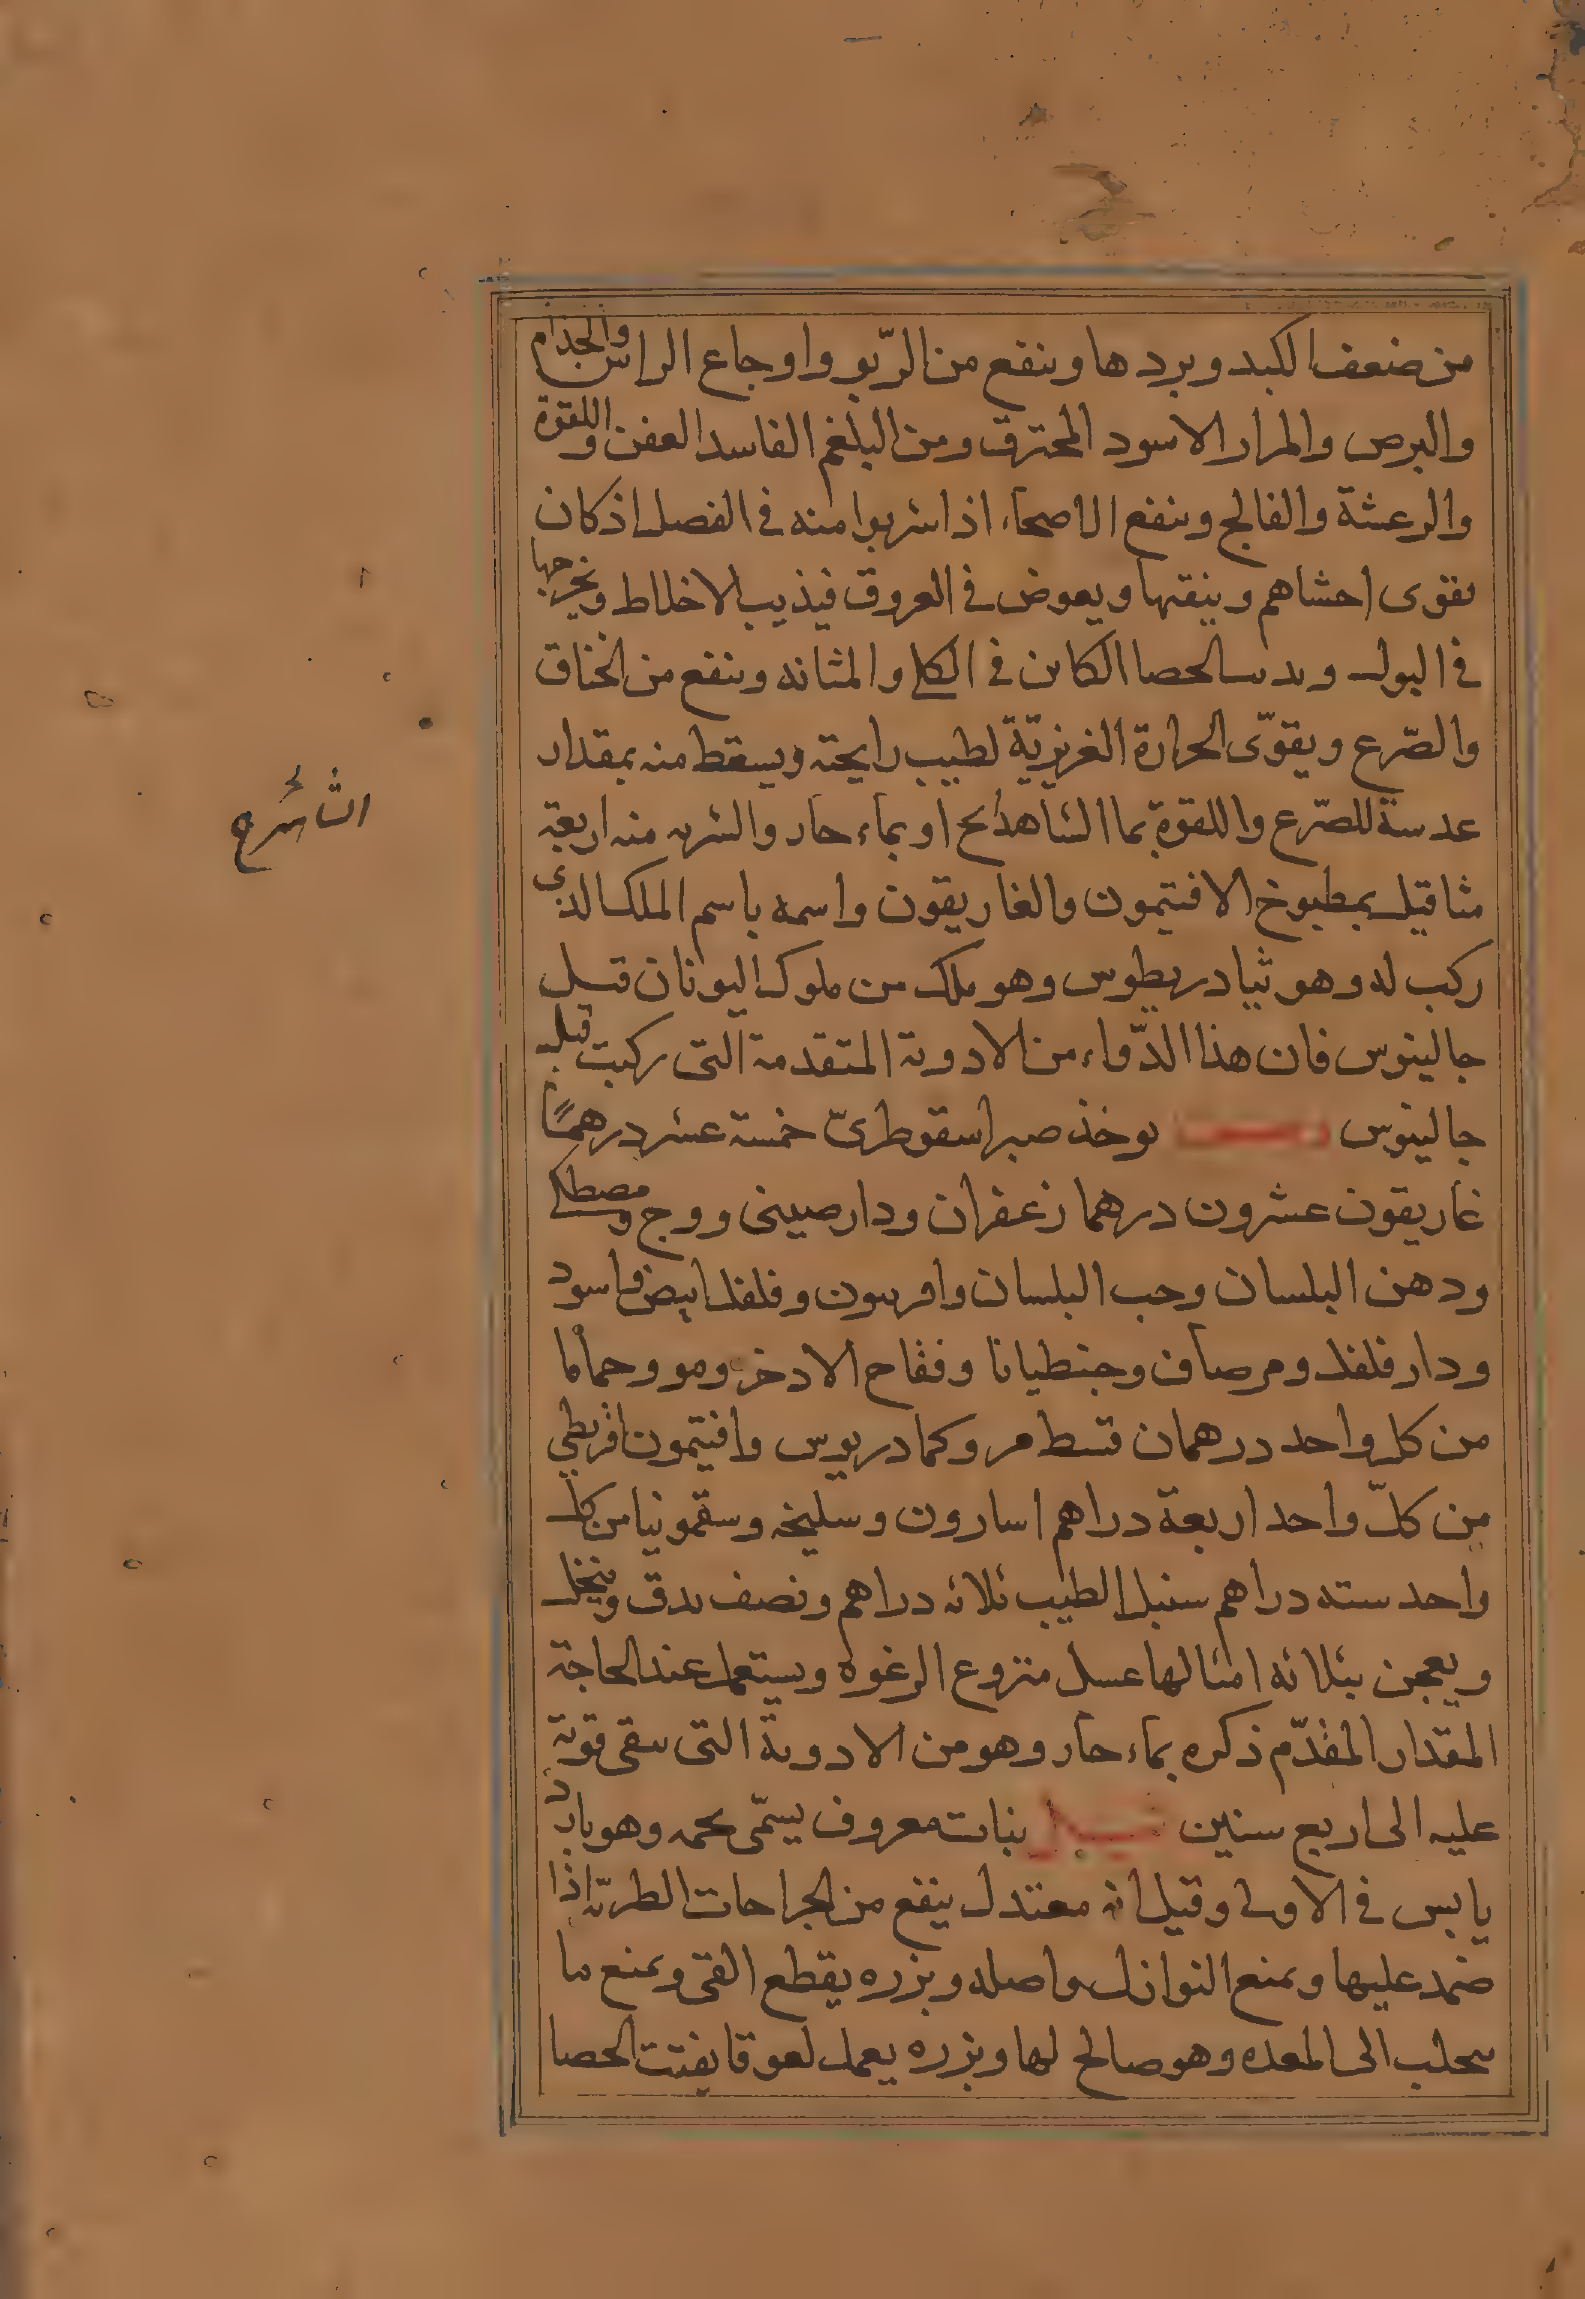 من ضعف الكبد وبردها وينفع من الرّبو واوجاع الراس والجذام
والبرص والمرار الاسود المحترق ومن البلغم الفاسد العفن واللقوة
والرعشة والفالج وينفع الاصحاء اذا شربوا منه في الفصل اذ كان
يقوى احشاهم وينقيها ويعوض في العروق فيذيب الاخلاط ويخرجها
في البول ويديب الحصا الكاين في الكلى والمثانه وينفع من الخناق
والصّرع ويقوّى الحرارة الغريزيّة لطيب رايحته ويسقط منه بمقدار
عدسة للصّرع واللقوة بما الشاهدانج او بماء حار والشربه منه اربعة
مثاقيل بمطبوخ الافتيمون والغاريقون واسمه باسم الملك الذي
ركب له وهو ثيادريطوس وهو ملك من ملوك اليونان قبل
جالينوس فان هذا الدّواء من الادوية المتقدمة التى ركبت قبل
جالينوس يوخذ صبر اسقوطرىّ خمسة عشر درهمًا
غاريقون عشرون درهما زعفران ودارصينى ووج ومصطكى
ودهن البلسان وحب البلسان وافربيون وفلفل ابيض واسود
ودار فلفل ومر صاف وجنطيانا وفقاح الادخر ومو وحماما
من كل واحد درهمان قسط مر وكمادريوس وافتيمون اقريطي
من كلّ واحد اربعة دراهم اسارون وسليخه وسقمونيا من كل
واحد سته دراهم سنبل الطيب ثلاثه دراهم ونصف يدق وينخل
ويعجن بثلاثه امثالها عسل منزوع الرغوه ويستعمل عند الحاجة
المقدار المقدّم ذكره بماء حار وهو من الادوية التى يبقى قوته
عليه الى اربع سنين نبات معروف يسمّى وهو بارد
يابس في الاولى وقيل انه معتدل ينفع من الجراحات الطريّة اذا
ضمد عليها ويمنع النوازل واصله وبزره يقطع القى ويمنع ما
يتحلب الى المعده وهو صالح لها وبزره يعمل لعوقا يفتت الحصا